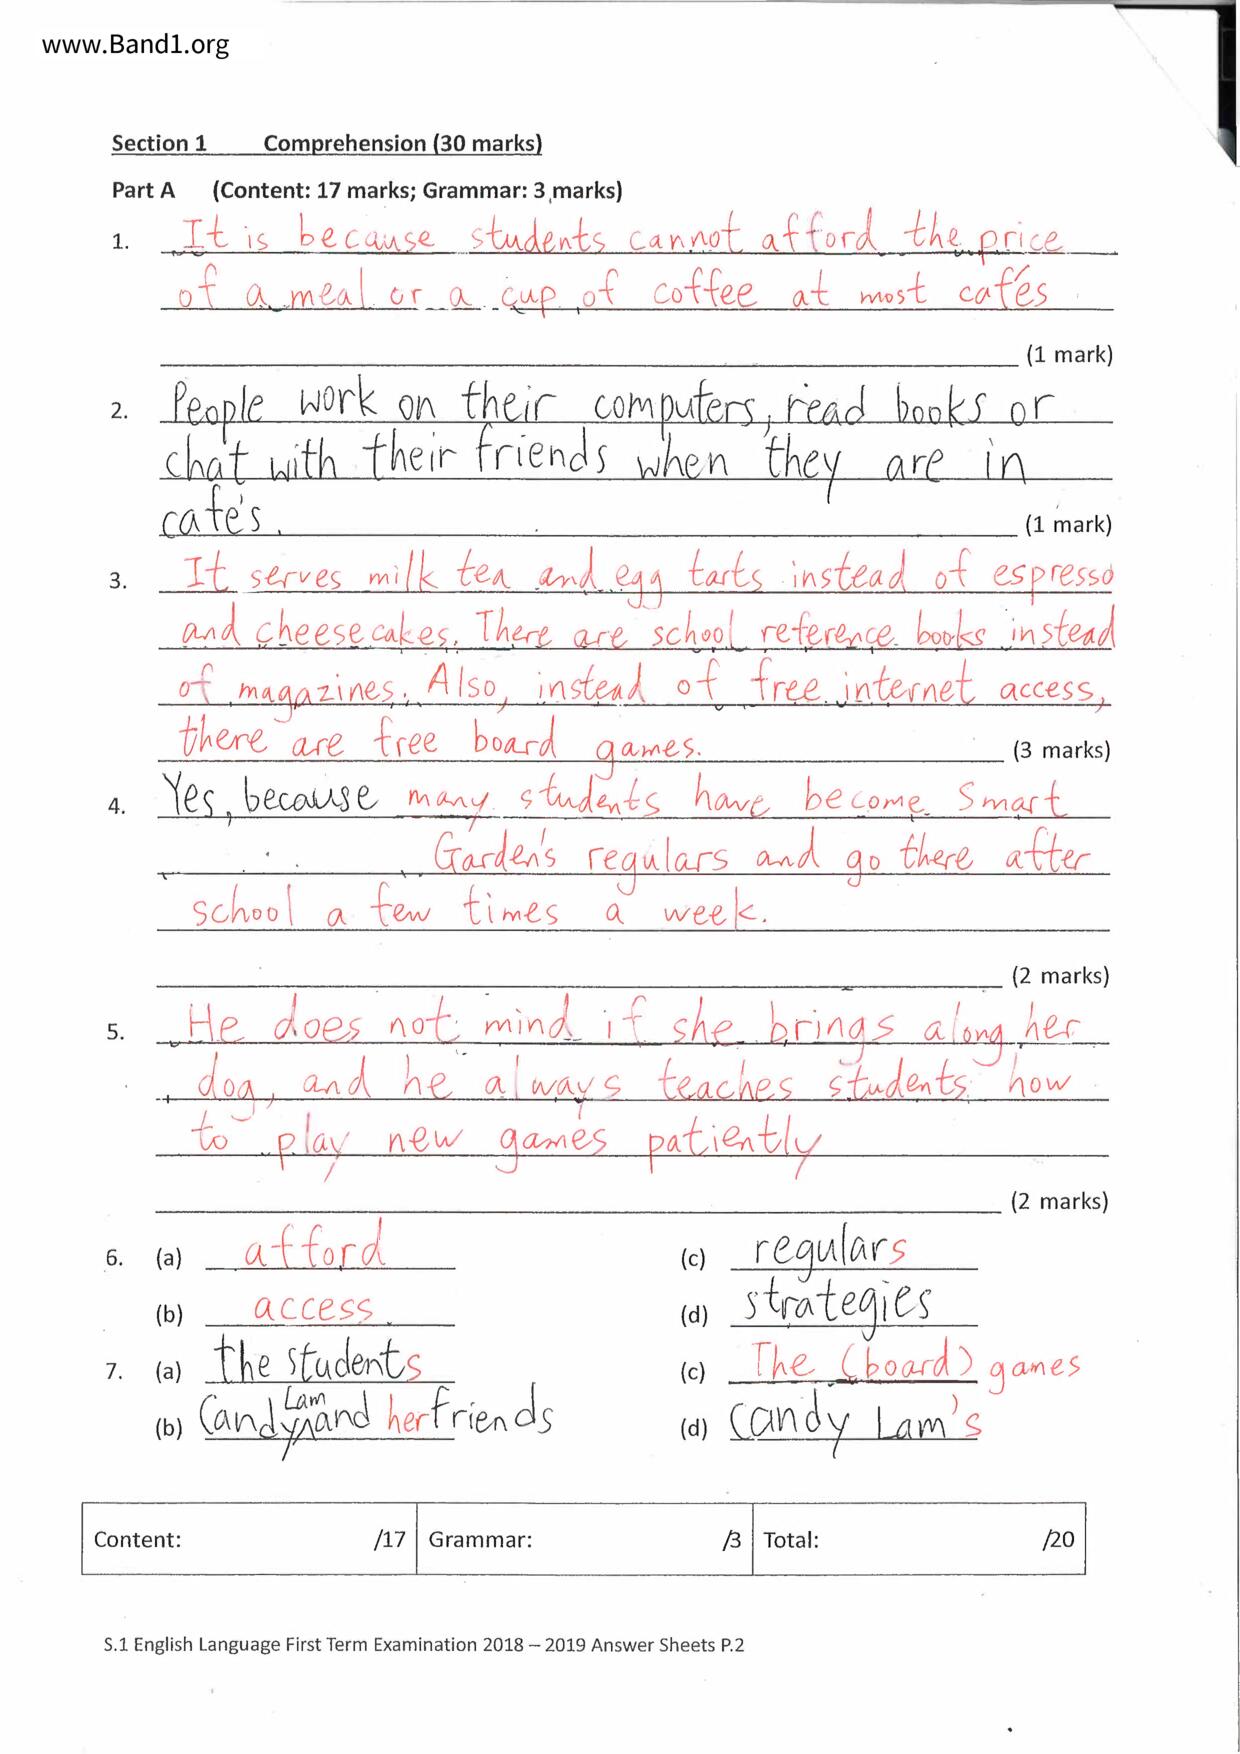 www.Band1.org
Section 1 Comprehension (30 marks)
Part A (Content: 17 marks; Grammar: 3 marks)
1. It is because students cannot afford the price
of a meal or a cup of coffee at most cafés
(1 mark)
2. People work on their computers, read books or
chat with their friends when they are in
cafe's. (1 mark)
3. It serves milk tea and egg tarts instead of espresso
and cheesecakes. There are school reference books instead
of magazines. Also, instead of free internet access,
there are free board games. (3 marks)
4. Yes, because many students have become Smart
Garden's regulars and go there after
school a few times a week.
(2 marks)
5. He does not mind if she brings along her
dog, and he always teaches students how
to play new games patiently
(2 marks)
6. (a) afford (c) regulars
(b) access (d) strategies
7. (a) the students (c) The (board) games
(b) Candy Lam and her friends (d) Candy Lam's
Content: /17 Grammar: /3 Total: /20
S.1 English Language First Term Examination 2018 – 2019 Answer Sheets P.2